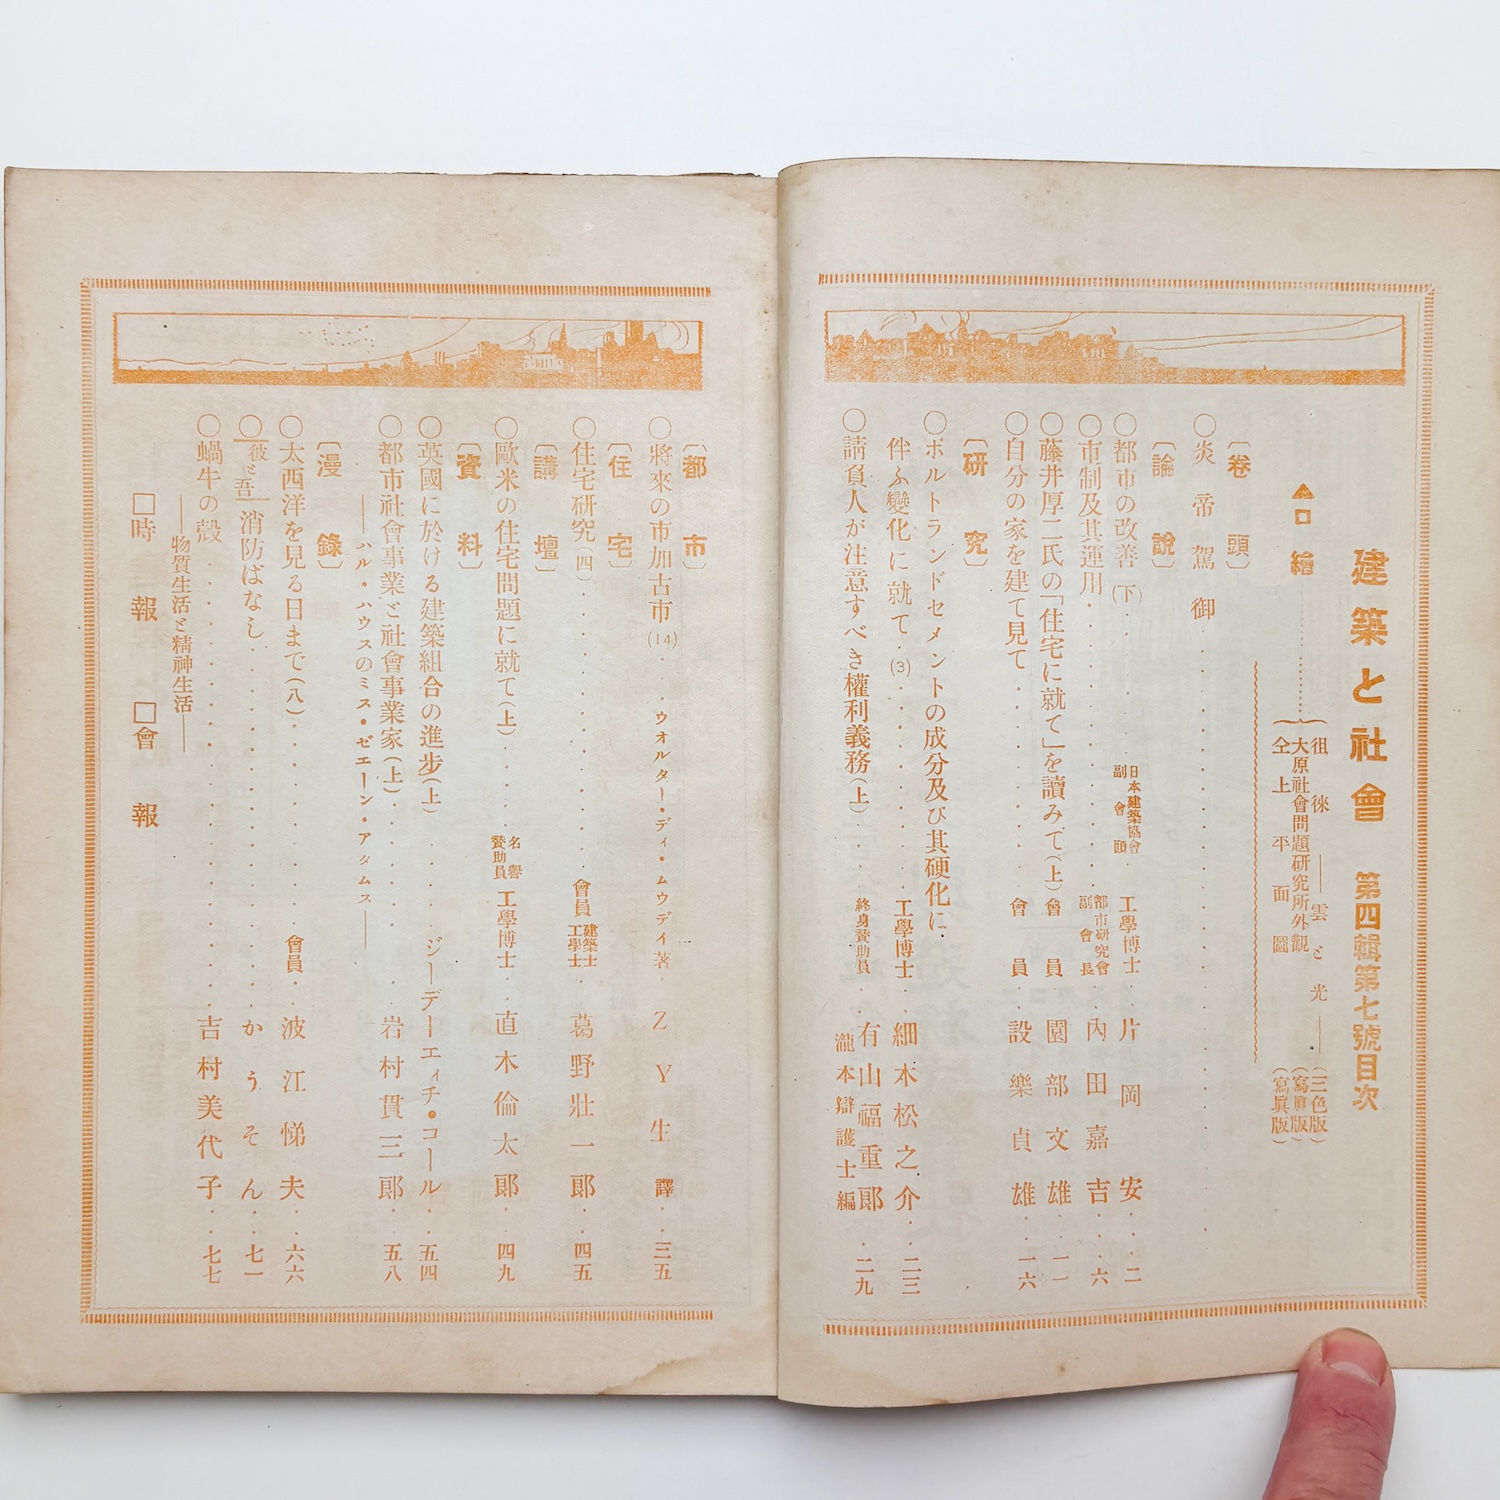 建築と社會　第四輯第七號目次
▲口繪
徂徠——雲と光——(三色版)
大原社會問題研究所外觀(寫眞版)
仝上平面圖(寫眞版)
〔卷頭〕
○炎帝駕御
〔論說〕
○都市の改善(下)・・・日本建築協會副會頭・工學博士・片岡安・・二
○市制及其運用・・・都市研究會副會長・內田嘉吉・・六
○藤井厚二氏の「住宅に就て」を讀みて(上)會員・園部文雄・・一一
○自分の家を建て見て・・・會員・設樂貞雄・・一六
〔硏究〕
○ポルトランドセメントの成分及び其硬化に
伴ふ變化に就て・(3)・・・工學博士・細木松之介・・二三
○請負人が注意すべき權利義務(上)・・終身贊助員・有山福重郞・二九
瀧本辯護士編
〔都市〕
○將來の市加古市(14)・・ウオルター・ディ・ムウデイ著・ZY生譯・・三五
〔住宅〕
○住宅硏究(四)・・・會員建築士工學士・葛野壯一郞・・四五
〔講壇〕
○歐米の住宅問題に就て(上)・・・名譽贊助員工學博士・・直木倫太郞・・四九
〔資料〕
○英國に於ける建築組合の進步(上)・・・ジーデーエィチ・コール・・五四
○都市社會事業と社會事業家(上)・・・岩村貫三郞・・五八
——ハル・ハウスのミス・ゼエーン・アダムス——
〔漫錄〕
○太西洋を見る日まで(八)・・・會員・波江悌夫・・六六
○|彼と吾|消防ばなし・・・かうそん・・七一
○蝸牛の殼・・・吉村美代子・・七七
——物質生活と精神生活——
□時報　□會報